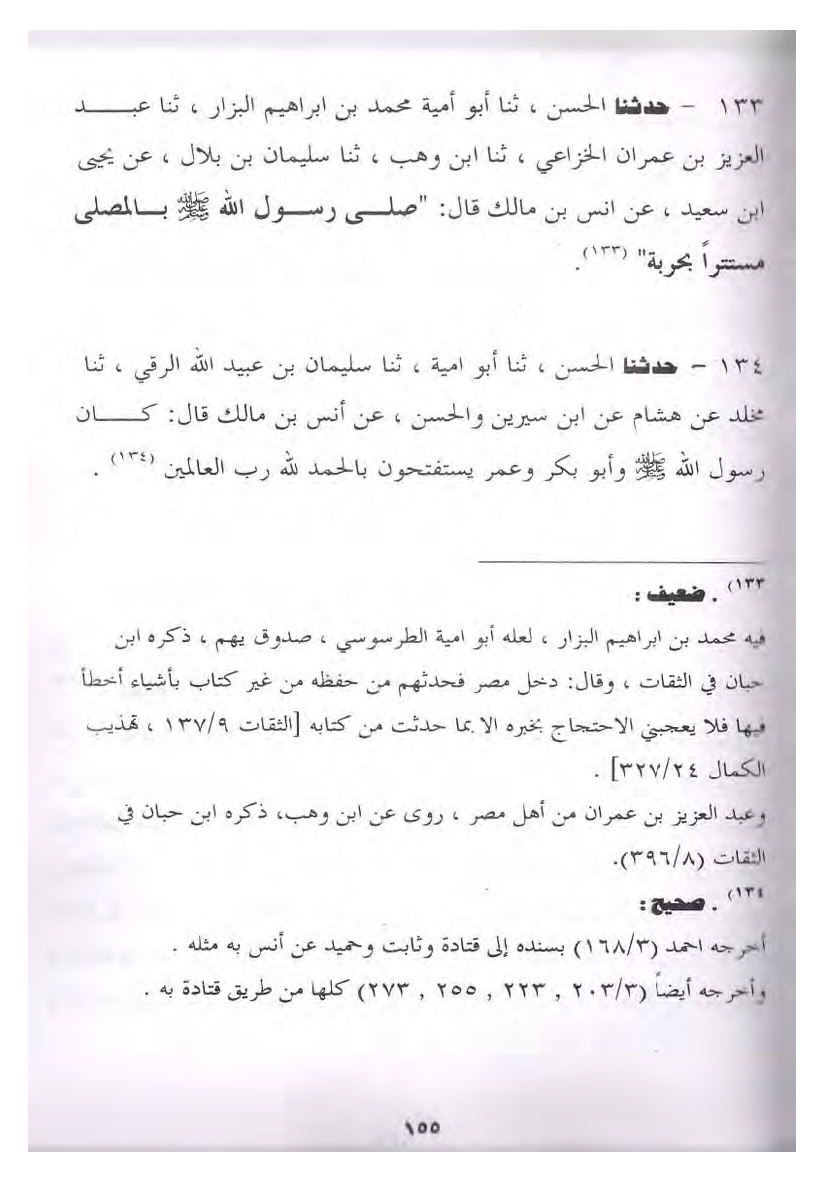 ١٣٣ – حدثنا الحسن ، ثنا أبو أمية محمد بن ابراهيم البزار ، ثنا عبد
العزيز بن عمران الخزاعي ، ثنا ابن وهب ، ثنا سليمان بن بلال ، عن يحيى
ابن سعيد ، عن انس بن مالك قال: "صلى رسول الله ﷺ بالمصلى
مستتراً بحربة" (١٣٣).
١٣٤ – حدثنا الحسن ، ثنا أبو امية ، ثنا سليمان بن عبيد الله الرقي ، ثنا
مخلد عن هشام عن ابن سيرين والحسن ، عن أنس بن مالك قال: كان
رسول الله ﷺ وأبو بكر وعمر يستفتحون بالحمد لله رب العالمين (١٣٤) .
١٣٣) . ضعيف :
فيه محمد بن ابراهيم البزار ، لعله أبو امية الطرسوسي ، صدوق يهم ، ذكره ابن
حبان في الثقات ، وقال: دخل مصر فحدثهم من حفظه من غير كتاب بأشياء أخطأ
فيها فلا يعجبني الاحتجاج بخبره الا بما حدثت من كتابه [الثقات ١٣٧/٩ ، تهذيب
الكمال ٣٢٧/٢٤] .
وعبد العزيز بن عمران من أهل مصر ، روى عن ابن وهب، ذكره ابن حبان في
الثقات (٣٩٦/٨).
١٣٤) . صحيح :
أخرجه احمد (١٦٨/٣) بسنده إلى قتادة وثابت وحميد عن أنس به مثله .
وأخرجه أيضاً (٢٠٣/٣ , ٢٢٣ , ٢٥٥ , ٢٧٣) كلها من طريق قتادة به .
١٥٥